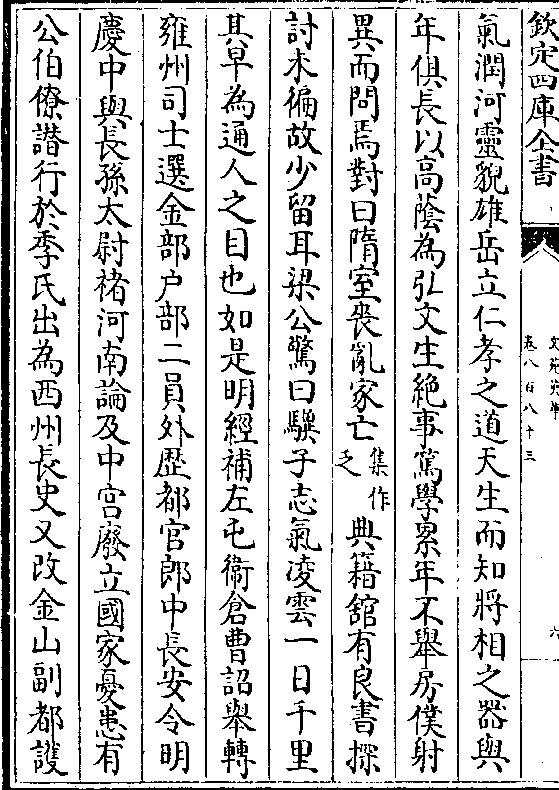 欽定四庫全書
文苑英華
卷八百八十三
六
氣潤河靈貌雄岳立仁孝之道天生而知將相之器與
年俱長以高蔭為弘文生絶事篤學累年不舉房僕射
異而問焉對曰隋室喪亂家亡集作乏典籍舘有良書探
討未徧故少留耳梁公驚曰驥子志氣凌雲一日千里
其早為通人之目也如是明經補左屯衞倉曹詔舉轉
雍州司士選金部户部二員外歴都官郎中長安令明
慶中與長孫太尉褚河南論及中宫廢立國家憂患有
公伯僚譖行於季氏出為西州長史又改金山副都護